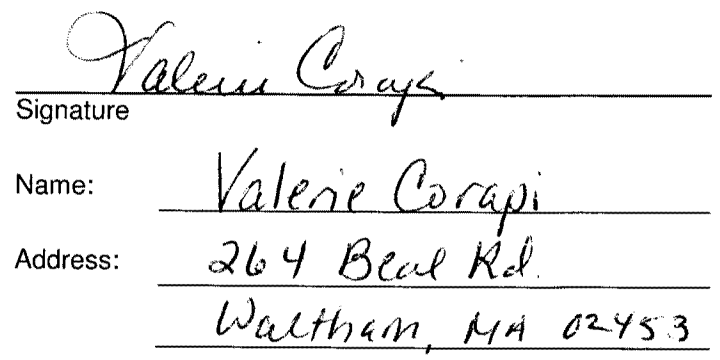 Valerie Corapi
Signature
Name: Valerie Corapi
Address: 264 Beal Rd.
Waltham, MA 02453